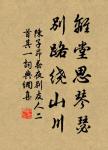 離堂思琴瑟
别路绕山川
陳子昂春夜别友人二
首其一詞典網集